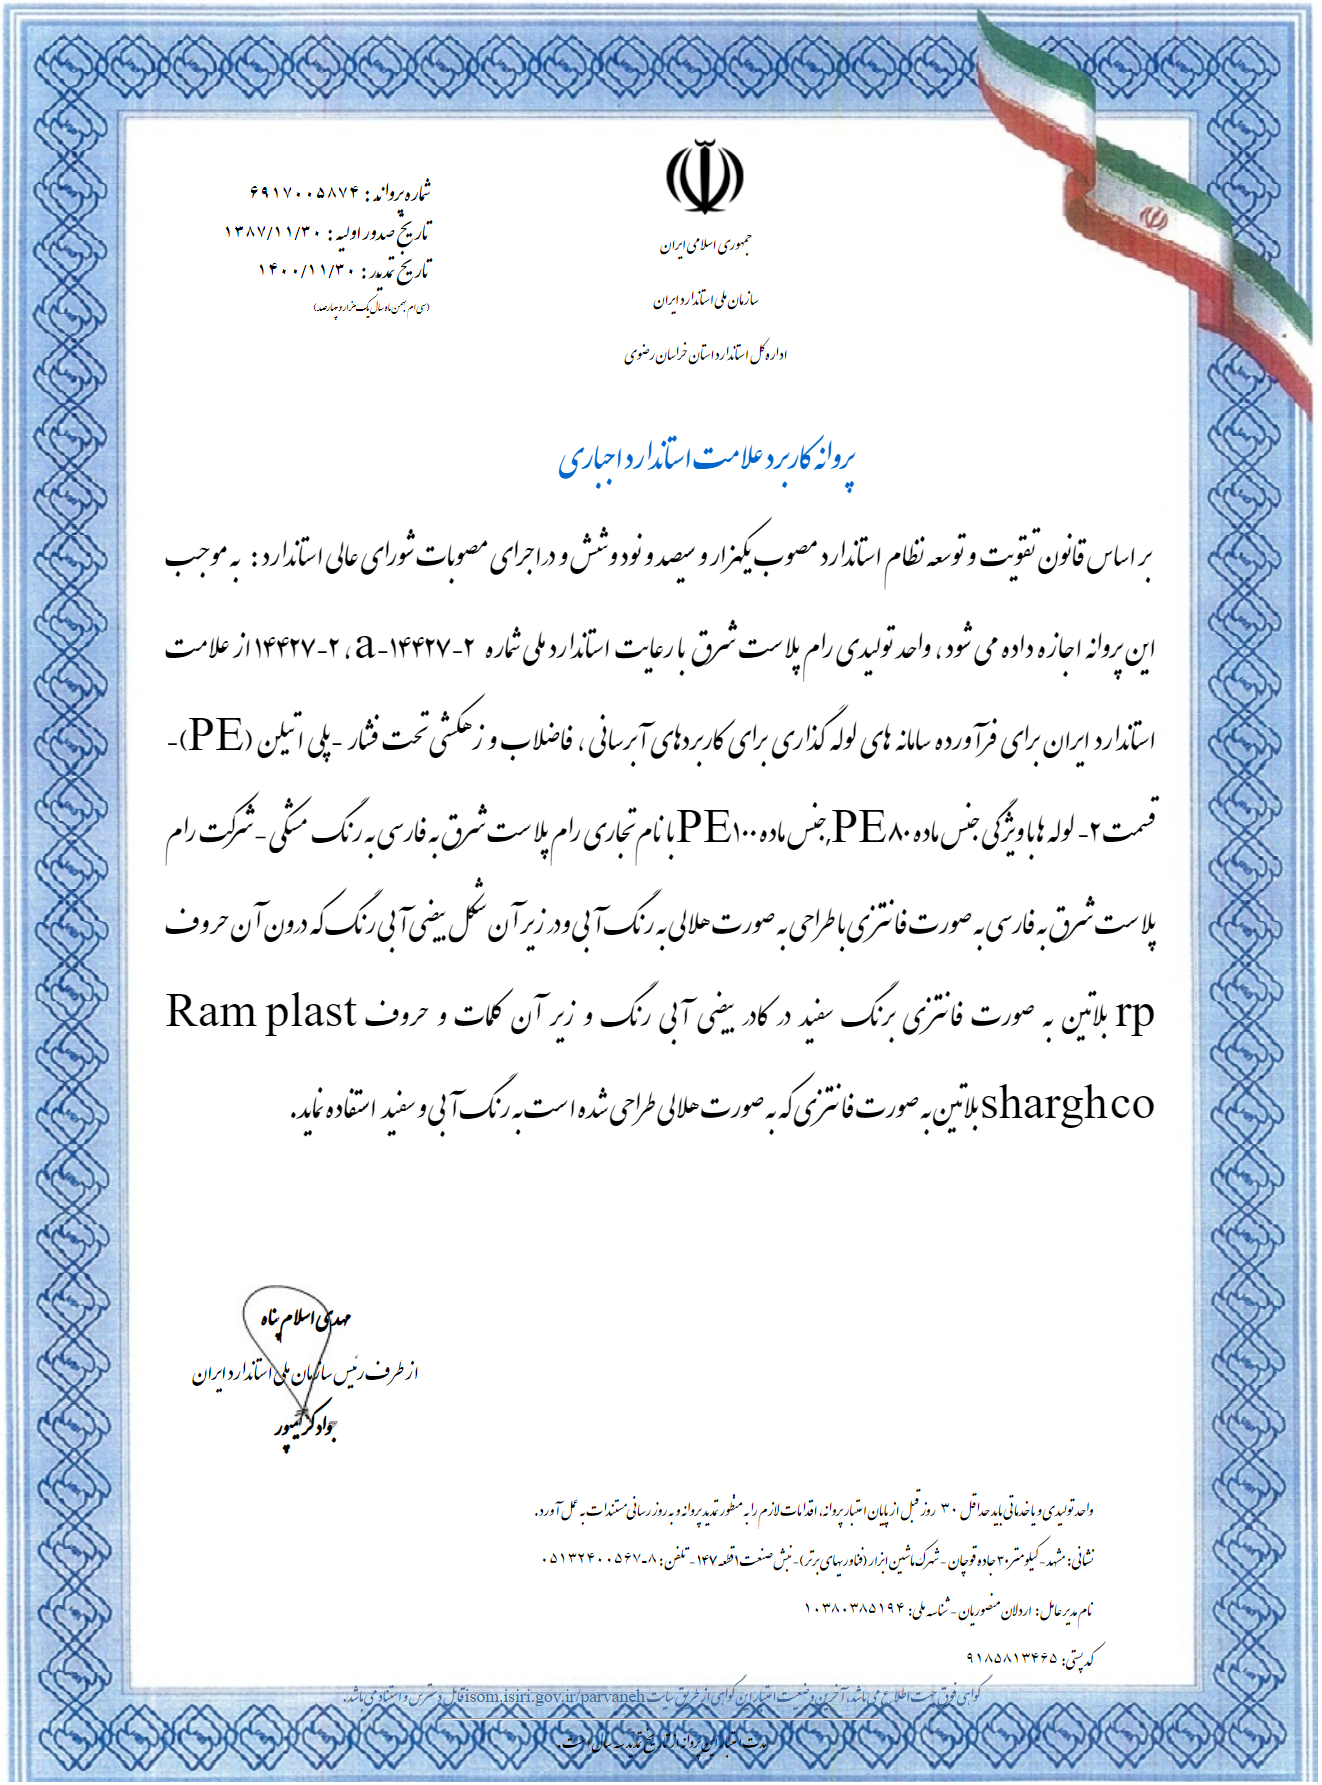 جمهوری اسلامی ایران
سازمان ملی استاندارد ایران
اداره کل استاندارد استان خراسان رضوی
شماره پروانه : ۶۹۱۷۰۰۵۸۷۴
تاریخ صدور اولیه : ۱۳۸۷/۱۱/۳۰
تاریخ تمدید : ۱۴۰۰/۱۱/۳۰
(سی ام بهمن ماه سال یک هزار و چهارصد)
پروانه کاربرد علامت استاندارد اجباری
بر اساس قانون تقویت و توسعه نظام استاندارد مصوب یکهزار و سیصد و نود و شش و در اجرای مصوبات شورای عالی استاندارد : به موجب
این پروانه اجازه داده می شود ، واحد تولیدی رام پلاست شرق با رعایت استاندارد ملی شماره ۲-۱۴۴۲۷-a ، ۲-۱۴۴۲۷ از علامت
استاندارد ایران برای فرآورده سامانه های لوله گذاری برای کاربردهای آبرسانی ، فاضلاب و زهکشی تحت فشار -پلی اتیلن (PE)-
قسمت ۲- لوله ها با ویژگی جنس ماده PE ۸۰,جنس ماده PE۱۰۰ با نام تجاری رام پلاست شرق به فارسی به رنگ مشکی -شرکت رام
پلاست شرق به فارسی به صورت فانتزی با طراحی به صورت هلالی به رنگ آبی ودر زیر آن شکل بیضی آبی رنگ که درون آن حروف
rp بلاتین به صورت فانتزی برنگ سفید در کادر بیضی آبی رنگ و زیر آن کلمات و حروف Ram plast
sharghco بلاتین به صورت فانتزی که به صورت هلالی طراحی شده است به رنگ آبی و سفید استفاده نماید.
مهدی اسلام پناه
از طرف رئیس سازمان ملی استاندارد ایران
جواد کریمپور
واحد تولیدی و یا خدماتی باید حداقل ۳۰ روز قبل از پایان اعتبار پروانه، اقدامات لازم را به منظور تمدید پروانه و به روز رسانی مستندات به عمل آورد.
نشانی: مشهد -کیلومتر۳۰جاده قوچان -شهرک ماشین ابزار (فناوریهای برتر)- نبش صنعت۱ قطعه ۱۴۷- تلفن: ۸-۰۵۱۳۲۴۰۰۵۶۷
نام مدیرعامل: اردلان منصوریان - شناسه ملی: ۱۰۳۸۰۳۸۵۱۹۴
کد پستی: ۹۱۸۵۸۱۳۴۶۵
گواهی فوق جهت اطلاع می باشد، آخرین وضعیت اعتبار این گواهی از طریق سایت isom.isiri.gov.ir/parvaneh قابل دسترس و استناد می باشد.
مدت اعتبار این پروانه از تاریخ تمدید سه سال است.